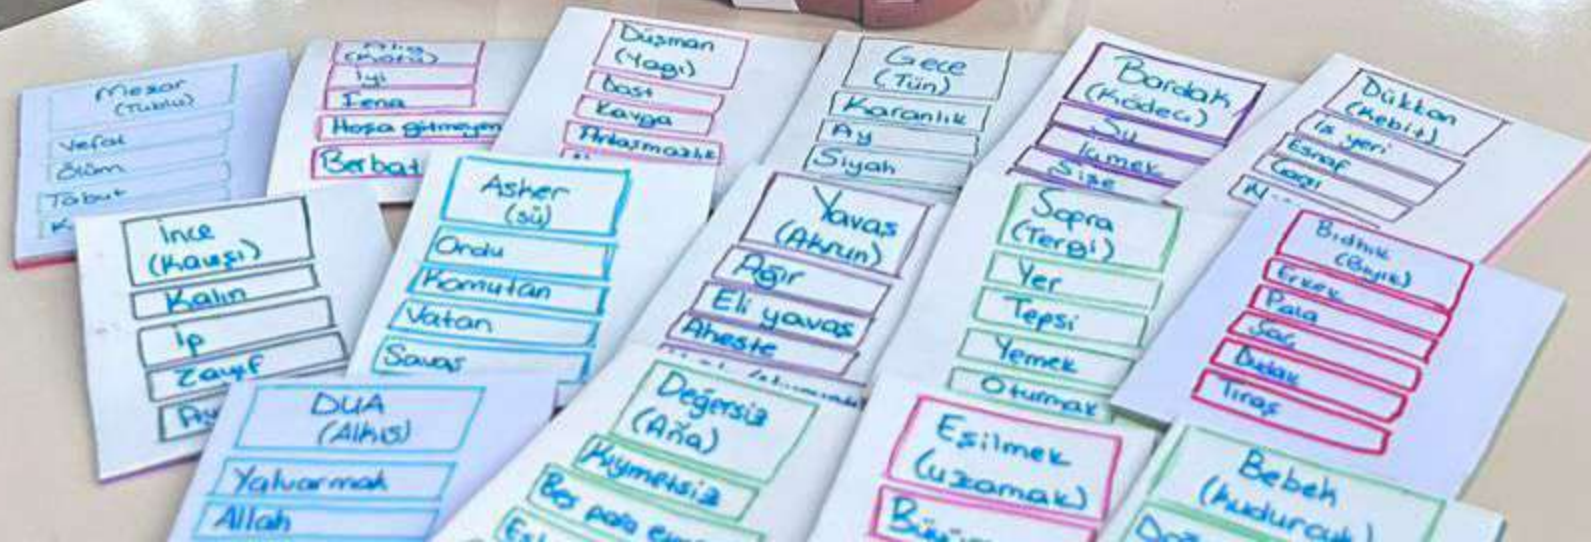 Mezar
(Tublu)
Vefat
Ölüm
Tabut
(Kötü)
İyi
Fena
Hoşa gitmeyen
Berbat
Düşman
(Yagı)
Dost
Kavga
Anlaşmazlık
Gece
(Tün)
Karanlık
Ay
Siyah
Bardak
(Ködeci)
Su
İçmek
Şişe
Dükkan
(Kebit)
İş yeri
Esnaf
Çarşı
İnce
(Kawşı)
Kalın
İp
Zayıf
Asker
(Sü)
Ordu
Komutan
Vatan
Savaş
Yavaş
(Akrun)
Ağır
Eli yavaş
Aheste
Sofra
(Tergi)
Yer
Tepsi
Yemek
Oturmak
Bıdhık
(Bıyık)
Erkek
Pala
Saç
Dudak
Tıraş
DUA
(Alkış)
Yalvarmak
Allah
Değersiz
(Aña)
Kıymetsiz
Beş para
Esilmek
(uzamak)
Bebek
(kudurcuk)